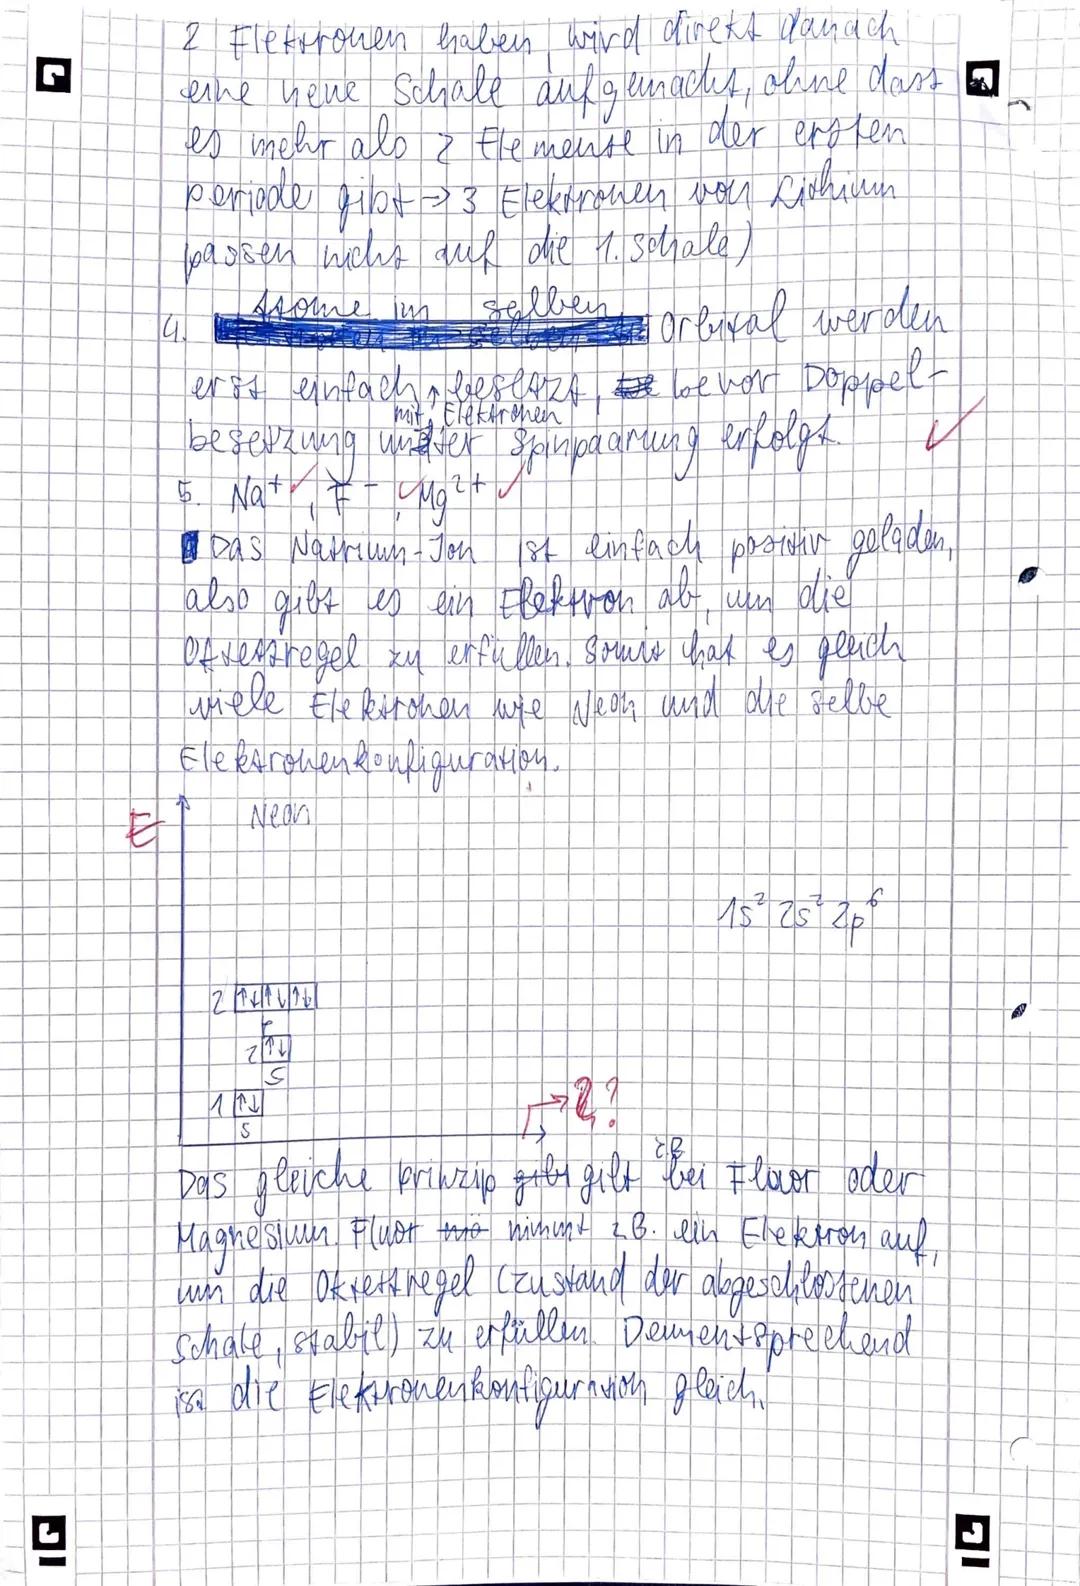 2 Elektronen haben, wird direkt danach
eine neue Schale aufgemacht, ohne dass
es mehr als 2 Elemente in der ersten
Periode gibt → 3 Elektronen von Lithium
passen nicht auf die 1. Schale)
Atome im selben
4. Orbital werden
erst einfach besetzt, bevor Doppel-
mit Elektronen
besetzung unter Spinpaarung erfolgt. ✓
5. Na⁺ ✓, F⁻ ✓, Mg²⁺ ✓
Das Natrium-Ion ist einfach positiv geladen,
also gibt es ein Elektron ab, um die
Oktettregel zu erfüllen. Somit hat es gleich
viele Elektronen wie Neon und die selbe
Elektronenkonfiguration.
E Neon
1s² 2s² 2p⁶
2 ↑↓ ↑↓ ↑↓
p
2 ↑↓
s
1 ↑↓
s
→ ?
z.B.
Das gleiche Prinzip gilt bei Fluor oder
Magnesium. Fluor nimmt z.B. ein Elektron auf,
um die Oktettregel (Zustand der abgeschlossenen
Schale, stabil) zu erfüllen. Dementsprechend
ist die Elektronenkonfiguration gleich.